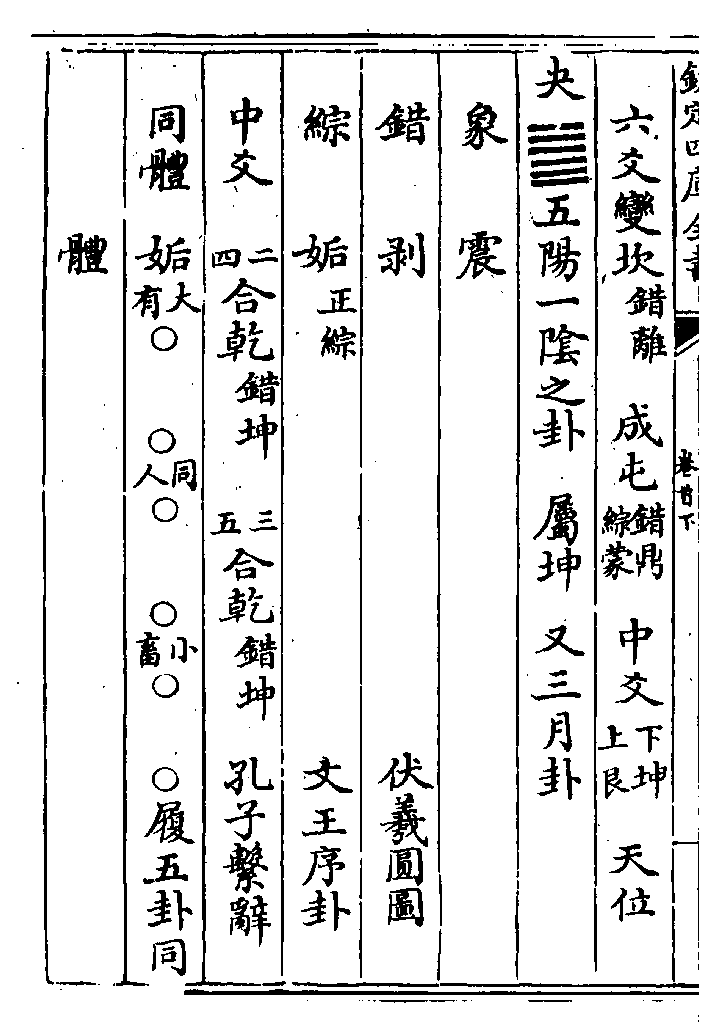 欽定四庫全書 卷首下
六爻變坎錯離 成屯錯鼎綜蒙 中爻下坤上艮 天位
夬䷪五陽一陰之卦 屬坤 又三月卦
象 震
錯 剥 伏羲圓圖
綜 姤正綜 文王序卦
中爻 二四合乾錯坤 三五合乾錯坤 孔子繫辭
同體 姤大有○ ○同人○ ○小畜○ ○履五卦同
體